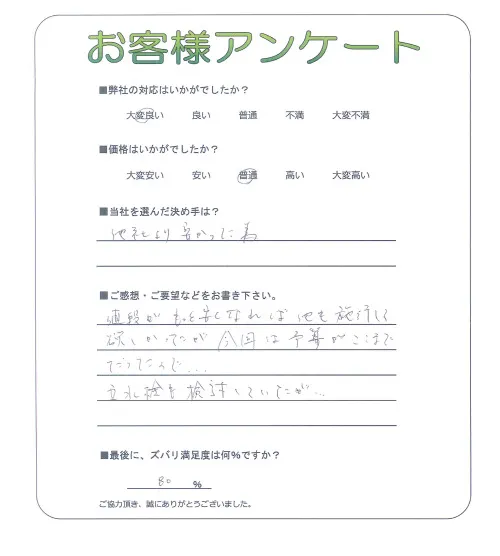 お客様アンケート
■弊社の対応はいかがでしたか？
大変良い 良い 普通 不満 大変不満
■価格はいかがでしたか？
大変安い 安い 普通 高い 大変高い
■当社を選んだ決め手は？
他社より安かった為
■ご感想・ご要望などをお書き下さい。
値段がもっと安くなれば他も施行して
欲しかったが今回は予算がここまで
だったんで...
立水栓も検討していたが...
■最後に、ズバリ満足度は何%ですか？
80 %
ご協力頂き、誠にありがとうございました。